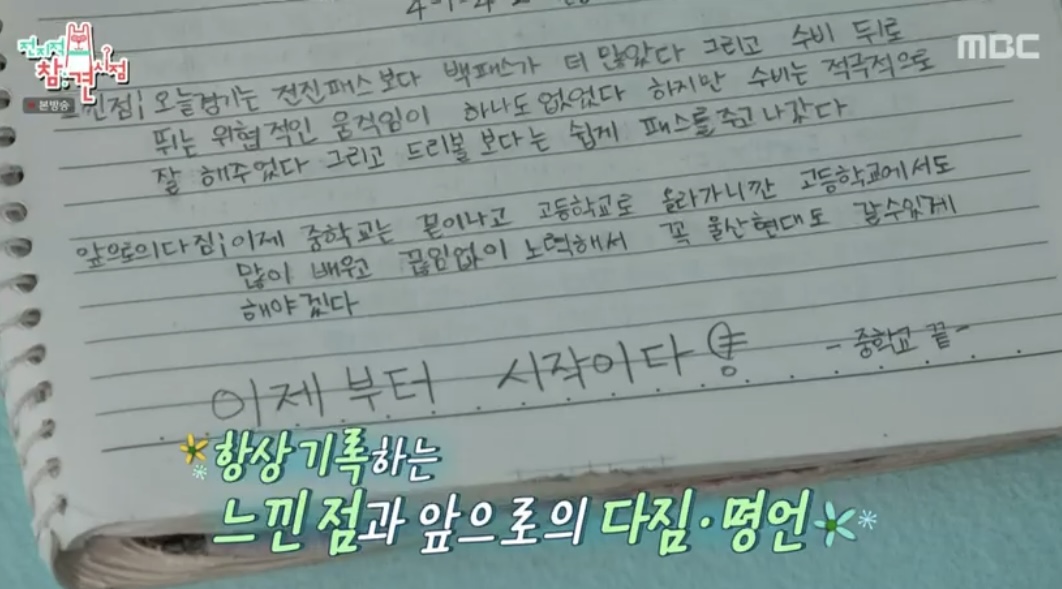 전지적
참견시점
본방송
MBC
느낀점; 오늘경기는 전진패스보다 백패스가 더 많았다 그리고 수비 뒤로
뛰는 위협적인 움직임이 하나도 없었다 하지만 수비는 적극적으로
잘 해주었다 그리고 드리볼 보다는 쉽게 패스를주고 나갔다
앞으로의다짐; 이제 중학교는 끝이나고 고등학교로 올라가니깐 고등학교에서도
많이 배우고 끊임없이 노력해서 꼭 울산현대도 갈수있게
해야겠다
이제부터 시작이다!
- 중학교 끝 -
항상 기록하는
느낀 점과 앞으로의 다짐·명언